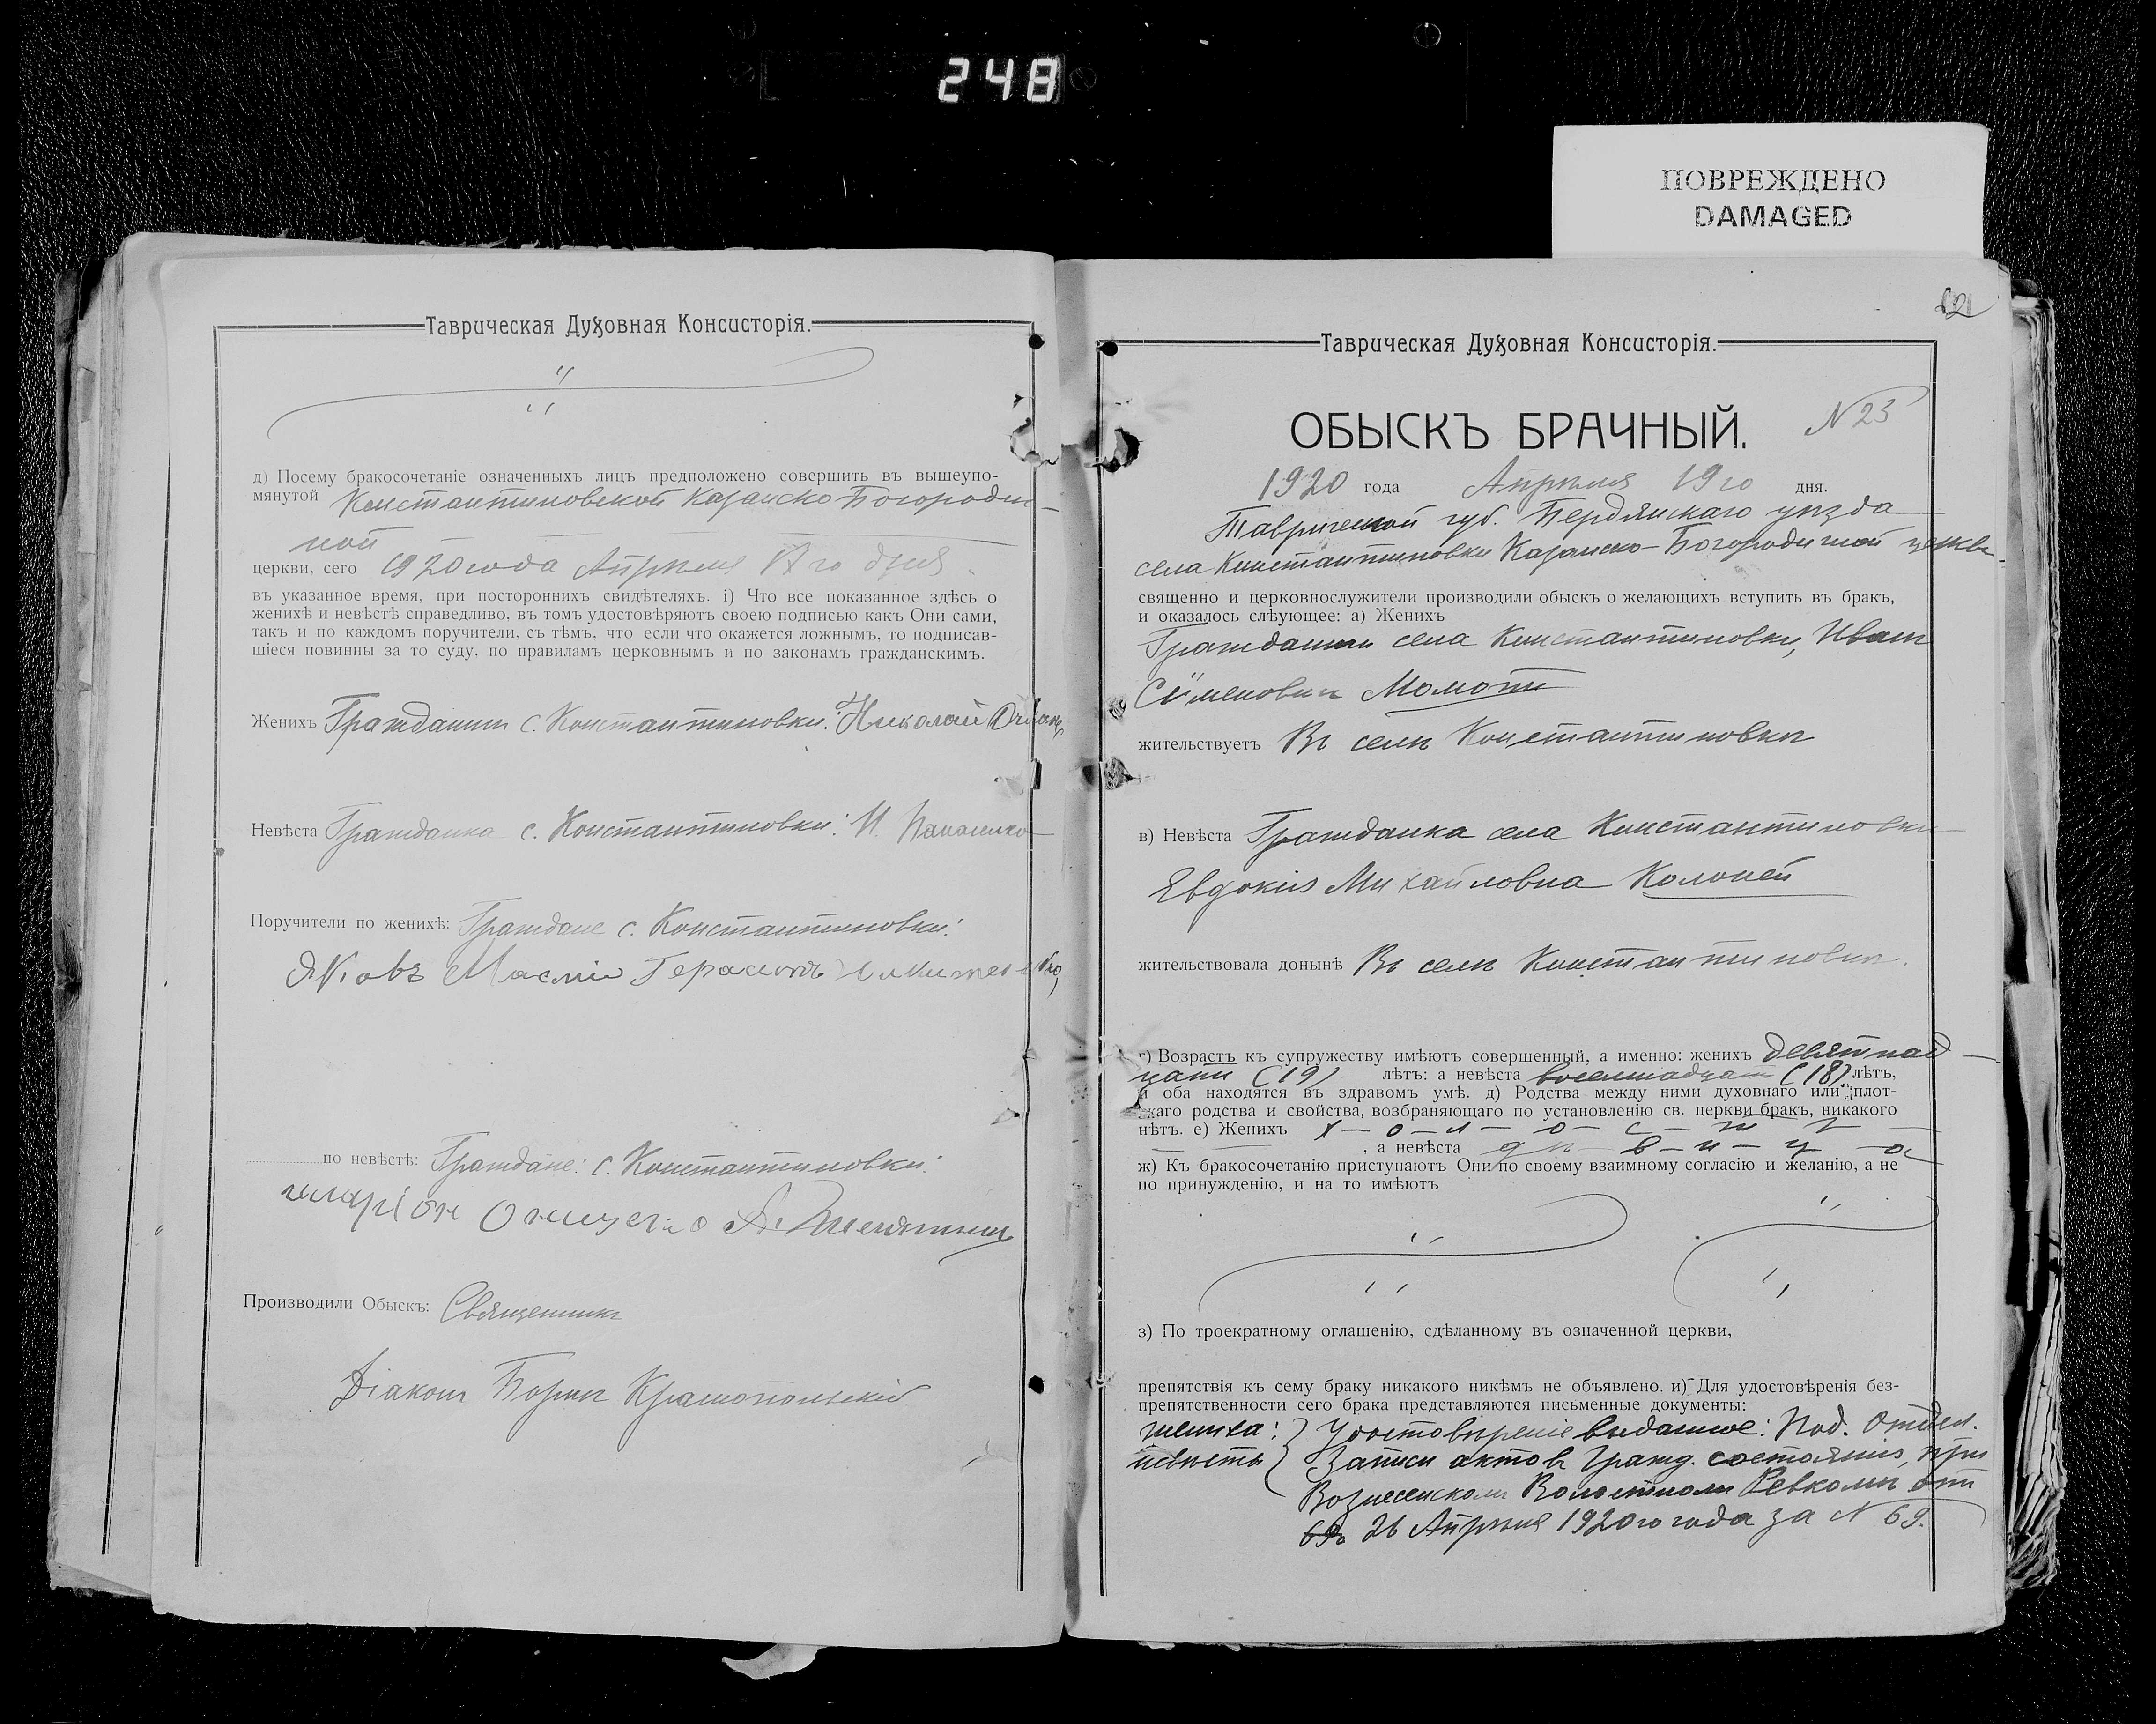 248
ПОВРЕЖДЕНО
DAMAGED
Таврическая Духовная Консисторія.
д) Посему бракосочетаніе означенныхъ лицъ предположено совершить въ вышеупо-
мянутой Константиновской Казанско Богородич-
ной
церкви, сего 1920 года Апрѣля го дня.
въ указанное время, при постороннихъ свидѣтеляхъ. і) Что все показанное здѣсь о
женихѣ и невѣстѣ справедливо, въ томъ удостовѣряютъ своею подписью какъ Они сами,
такъ и по каждомъ поручители, съ тѣмъ, что если что окажется ложнымъ, то подписав-
шіеся повинны за то суду, по правиламъ церковнымъ и по законамъ гражданскимъ.
Женихъ Гражданин с. Константиновки: Николай
Невѣста Гражданка с. Константиновки: И. Панасенко
Поручители по женихѣ: Граждане с. Константиновки:
Яковъ Масліи Герасимъ
по невѣстѣ: Граждане: с. Константиновки:
Онищенко А.
Производили Обыскъ: Священник
Діакон Борис Крамопольскій
621
Таврическая Духовная Консисторія.
ОБЫСКЪ БРАЧНЫЙ. N 23
1920 года Апрѣля 19 го дня.
Таврической губ. Бердянскаго уѣзда
села Константиновки Казанско-Богородичной церкви
священно и церковнослужители производили обыскъ о желающихъ вступить въ бракъ,
и оказалось слѣующее: а) Женихъ
Гражданин села Константиновки, Иван
Семенович Момот
жительствуетъ Въ селѣ Константиновкѣ
в) Невѣста Гражданка села Константиновки
Евдокія Михайловна Коломей
жительствовала донынѣ Въ селѣ Константиновкѣ.
г) Возрастъ къ супружеству имѣютъ совершенный, а именно: женихъ девятнад
цати (19) лѣтъ: а невѣста восемнадцат (18) лѣтъ,
и оба находятся въ здравомъ умѣ. д) Родства между ними духовнаго или плот-
скаго родства и свойства, возбраняющаго по установленію св. церкви бракъ, никакого
нѣтъ. е) Женихъ х-о-л-о-с-т
, а невѣста дѣ-в-и-ц-а
ж) Къ бракосочетанію приступаютъ Они по своему взаимному согласію и желанію, а не
по принужденію, и на то имѣютъ
з) По троекратному оглашенію, сдѣланному въ означенной церкви,
препятствія къ сему браку никакого никѣмъ не объявлено. и) Для удостовѣренія без-
препятственности сего брака представляются письменные документы:
жениха: } Удостовѣреніе выданное: Под. Отдел.
невѣсты } Записи актов Гражд. состоянія, при
Вознесенском Волостном Ревкомѣ от
26 Апрѣля 1920 го года за N 69.